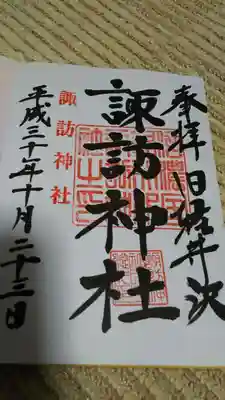 奉拝 旧碓井次
諏訪神社
諏訪神社
平成三十年十月二十三日